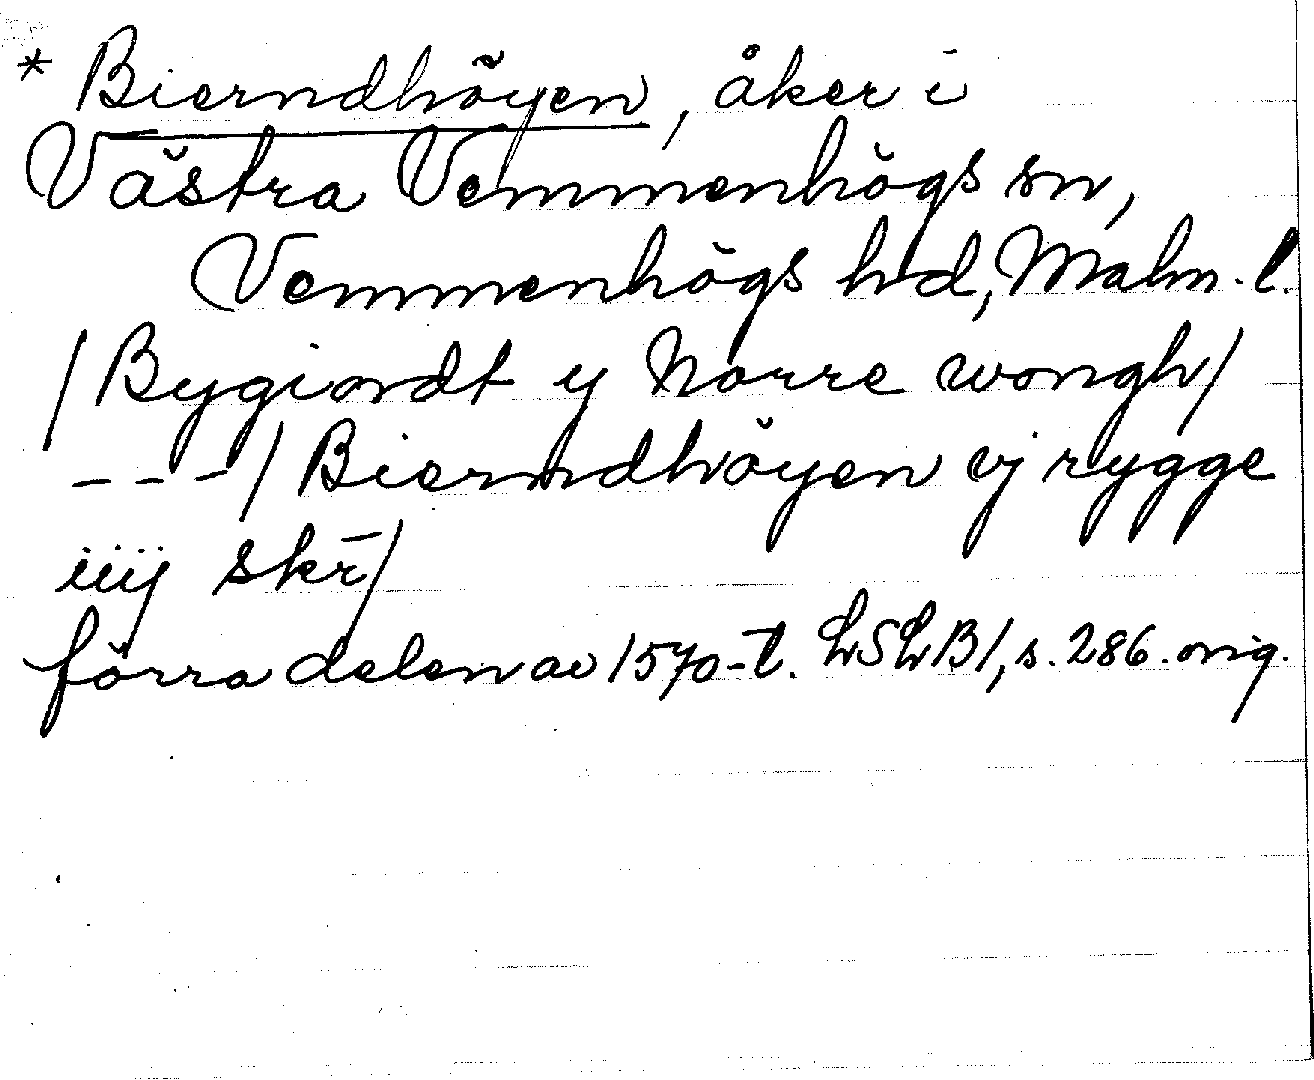 * Bierndhöyen, åker i
Västra Vemmenhögs sn,
Vemmenhögs hd, Malm. l.
/Bygiordt y Norre wongh/
---/Bierndhöyen vj rygge
iiij skr̄/
förra delen av 1570-t. LSLB1, s. 286. orig.